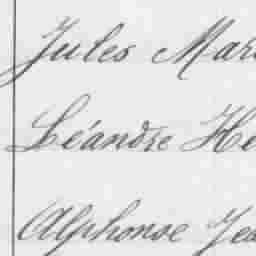 Jules Mar
Léandre He
Alphonse Jea